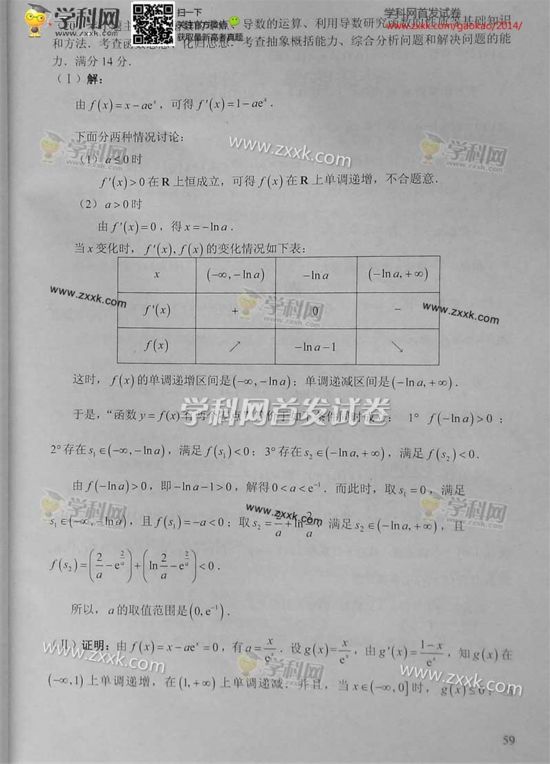 学科网
WWW.ZXXK.COM
扫一下
关注官方微信
获取最新高考真题
学科网首发试卷
http://www.zxxk.com/gaokao/2014/
导数的运算、利用导数研究函数的性质等基础知识
和方法．考查函数思想、化归思想．考查抽象概括能力、综合分析问题和解决问题的能
力．满分 14 分．
（Ⅰ）解：
由 f(x)=x−ae^x，可得 f′(x)=1−ae^x．
下面分两种情况讨论：
（1）a≤0 时
f′(x)>0 在 R 上恒成立，可得 f(x) 在 R 上单调递增，不合题意．
（2）a>0 时
由 f′(x)=0，得 x=−ln a．
当 x 变化时，f′(x), f(x) 的变化情况如下表：
x (−∞,−ln a) −ln a (−ln a,+∞)
f′(x) + 0 −
f(x) ↗ −ln a−1 ↘
这时，f(x) 的单调递增区间是 (−∞,−ln a)；单调递减区间是 (−ln a,+∞)．
学科网首发试卷
于是，“函数 y=f(x) 有两个零点” ： 1° f(−ln a)>0；
2° 存在 s₁∈(−∞,−ln a)，满足 f(s₁)<0；3° 存在 s₂∈(−ln a,+∞)，满足 f(s₂)<0．
由 f(−ln a)>0，即 −ln a−1>0，解得 0<a<e^(−1)．而此时，取 s₁=0，满足
s₁∈(−∞,−ln a)，且 f(s₁)=−a<0；取 s₂=2/a+ln 2/a，满足 s₂∈(−ln a,+∞)，且
f(s₂)=(2/a−e^(2/a))+(ln 2/a−e^(2/a))<0．
所以，a 的取值范围是 (0,e^(−1))．
（Ⅱ）证明：由 f(x)=x−ae^x=0，有 a=x/e^x．设 g(x)=x/e^x，由 g′(x)=(1−x)/e^x，知 g(x) 在
(−∞,1) 上单调递增，在 (1,+∞) 上单调递减．并且，当 x∈(−∞,0] 时，g(x)≤0；
www.zxxk.com
59